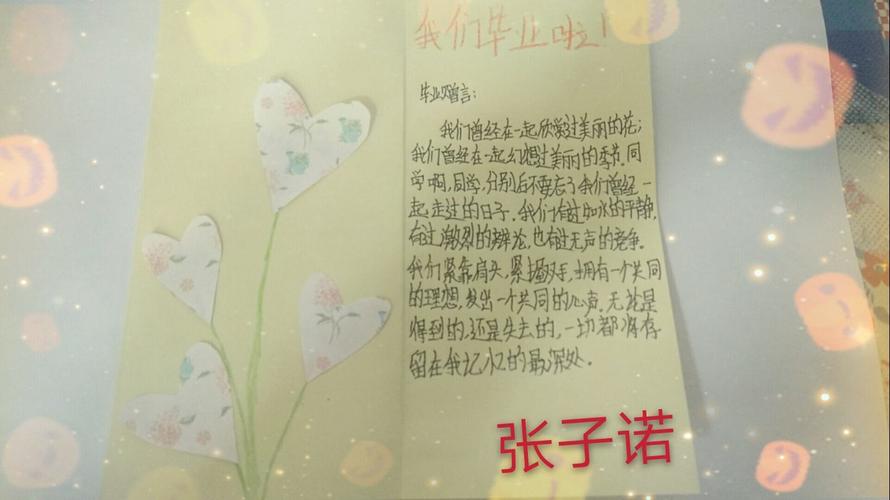 我们毕业啦！
毕业留言：
我们曾经在一起欣赏过美丽的花；
我们曾经在一起幻想过美丽的季节。同
学啊，同学，分别后不要忘了我们曾经一
起走过的日子。我们有过如水的平静，
有过激烈的辩论，也有过无声的竞争。
我们紧靠肩头，紧握双手，拥有一个共同
的理想，发出一个共同的心声。无论是
得到的，还是失去的，一切都将存
留在我记忆的最深处。
张子诺